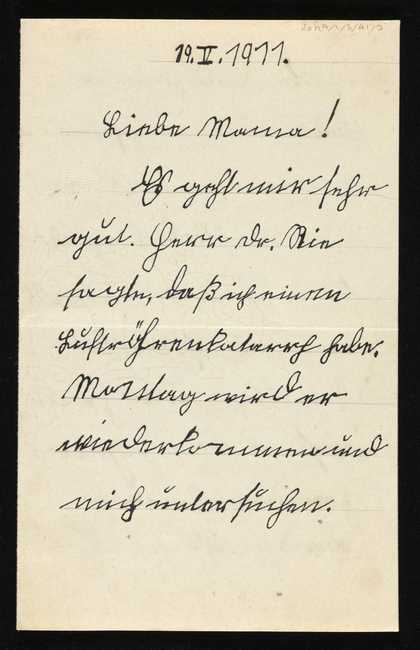 19. V. 1911.
Liebe Mama!
Es geht mir sehr
gut. Herr Dr. Rie
sagte, daß ich einen
Luftröhrenkatarrh habe.
Montag wird er
wiederkommen und
mich untersuchen.